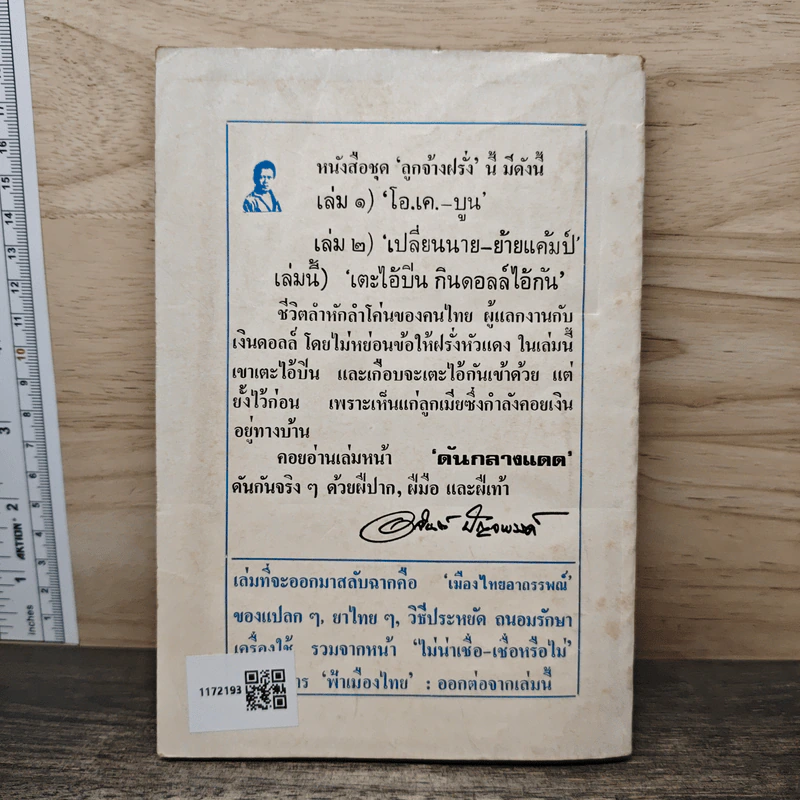 หนังสือชุด 'ลูกจ้างฝรั่ง' นี้ มีดังนี้
เล่ม ๑) 'โอ.เค.-บูน'
เล่ม ๒) 'เปลี่ยนนาย-ย้ายแค้มป์'
เล่มนี้) 'เตะไอ้บีน กินดอลล์ไอ้กัน'
ชีวิตลำหักลำโค่นของคนไทย ผู้แลกงานกับ
เงินดอลล์ โดยไม่หย่อนข้อให้ฝรั่งหัวแดง ในเล่มนี้
เขาเตะไอ้บีน และเกือบจะเตะไอ้กันเข้าด้วย แต่
ยั้งไว้ก่อน เพราะเห็นแก่ลูกเมียซึ่งกำลังคอยเงิน
อยู่ทางบ้าน
คอยอ่านเล่มหน้า 'ดันกลางแดด'
ดันกันจริง ๆ ด้วยฝีปาก, ฝีมือ และฝีเท้า
อาจินต์ ปัญจพรรค์
เล่มที่จะออกมาสลับฉากคือ 'เมืองไทยอาถรรพณ์'
ของแปลก ๆ, ยาไทย ๆ, วิธีประหยัด ถนอมรักษา
เครื่องใช้ รวมจากหน้า "ไม่น่าเชื่อ-เชื่อหรือไม่"
าร 'ฟ้าเมืองไทย' : ออกต่อจากเล่มนี้
1172193
inches
AKTION